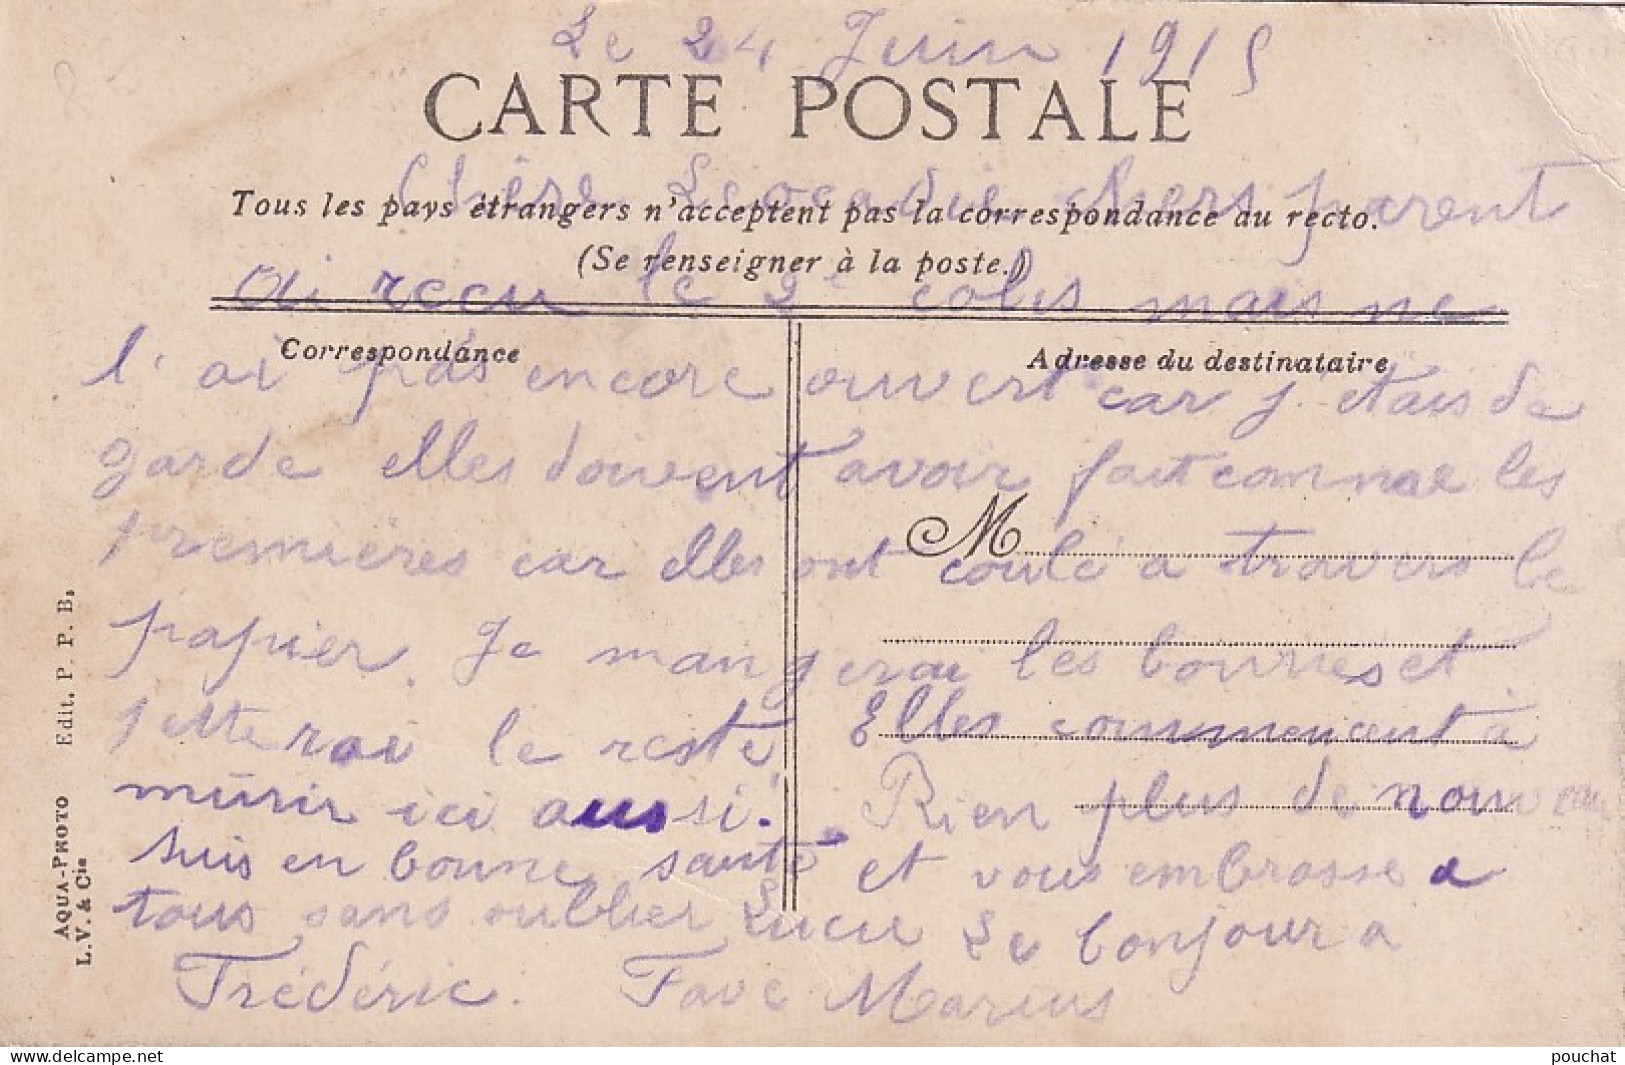 Le 24 Juin 1915
CARTE POSTALE
Chère Leocadie chers parent
Tous les pays étrangers n'acceptent pas la correspondance au recto.
(Se renseigner à la poste.)
ai recu le 2e colis mais ne
Correspondance
Adresse du destinataire
l'ai pas encore ouvert car j'etais de
garde elles doivent avoir fait comme les
M
premières car elles ont coulé a travers le
papier. Je mangerai les bonnes et
jetterai le reste. Elles commencent à
mûrir ici aussi. Rien plus de nouveau
suis en bonne santé et vous embrasse a
tous sans oublier Lucie Le bonjour a
Frédéric. Fave Marius
AQUA-PHOTO Edit. P. P. B.
L.V. & Cie
pouchat